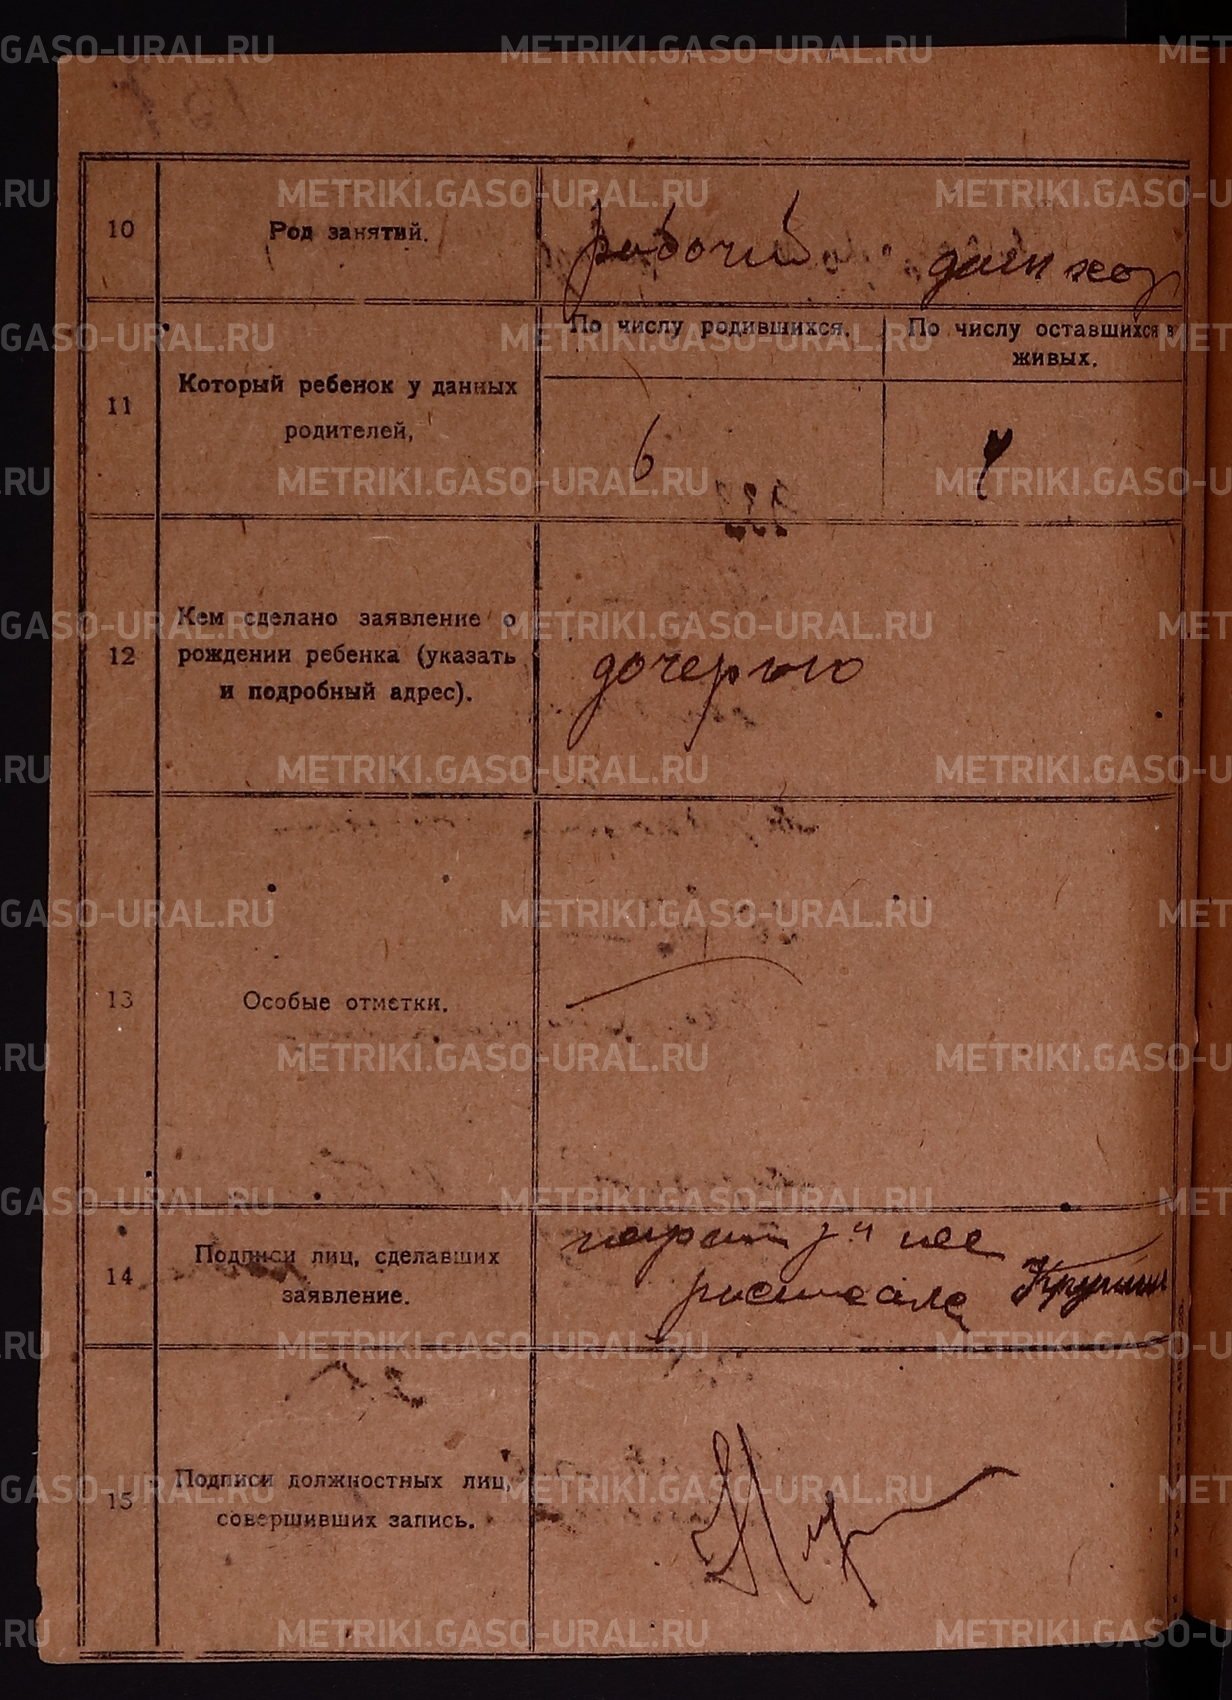 10
Род занятий.
рабочий
дом хоз
11
Который ребенок у данных
родителей,
По числу родившихся.
По числу оставшихся в
живых.
6
4
12
Кем сделано заявление о
рождении ребенка (указать
и подробный адрес).
дочерью
13
Особые отметки.
14
Подписи лиц, сделавших
заявление.
15
Подписи должностных лиц,
совершивших запись.
METRIKI.GASO-URAL.RU